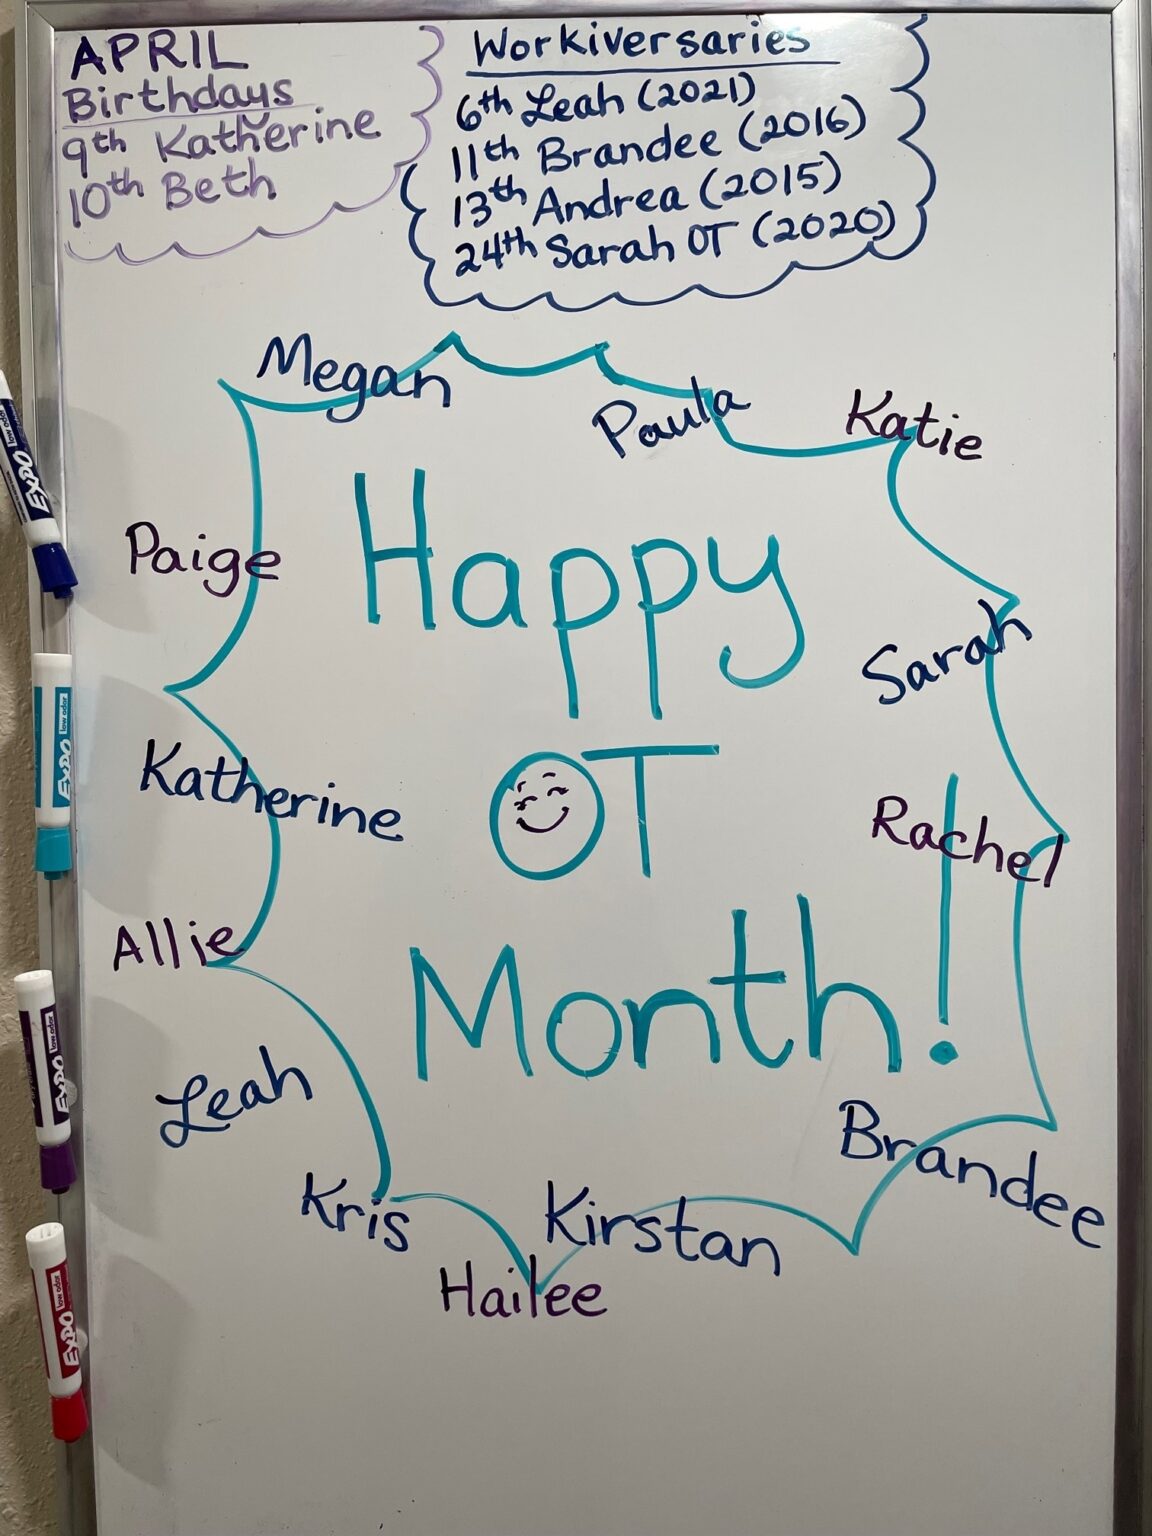 APRIL
Birthdays
9th Katherine
10th Beth
Workiversaries
6th Leah (2021)
11th Brandee (2016)
13th Andrea (2015)
24th Sarah OT (2020)
Megan
Paula
Katie
Paige
Happy
Sarah
Katherine
OT
Rachel
Allie
Month!
Leah
Brandee
Kris
Kirstan
Hailee
EXPO
low odor
EXPO
low odor
EXPO
low odor
EXPO
low odor